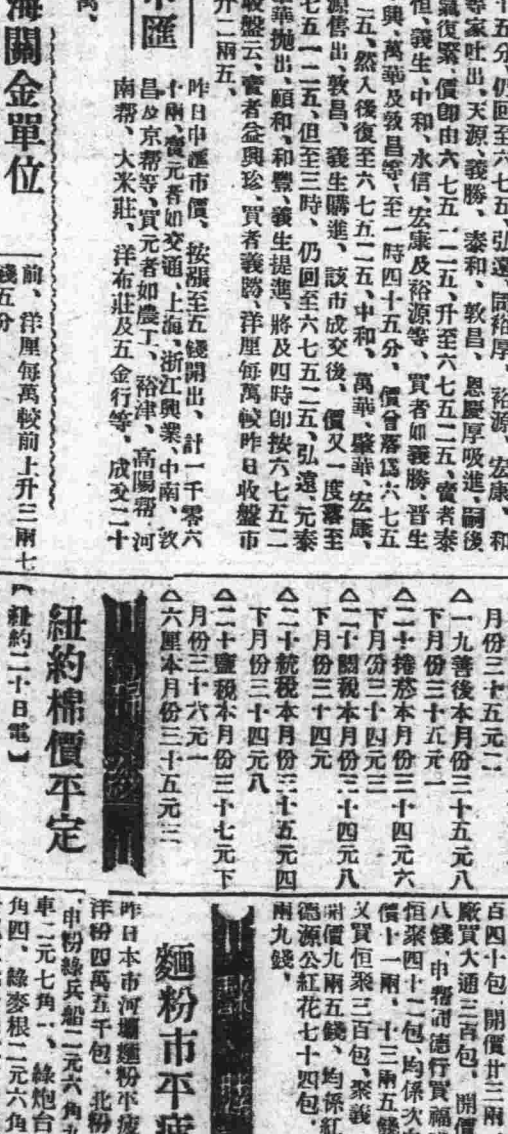 十五分、仍回至六七五、弘遠、同裕厚、裕源、宏康、和
等家吐出、天源、義勝、泰和、敦昌、恩慶厚吸進、嗣後
氣復緊、價即由六七五一二五、升至六七五二五、賣者泰
恒、義生、中和、永信、宏康及裕源等、買者如義勝、晋生
興、萬華及敦昌等、至一時四十五分、價曾落爲六七五
二五、然入後復至六七五二五、中和、萬華、肇華、宏康、
源售出、敦昌、義生購進、該市成交後、價又一度落至
七五一二五、但至三時、仍回至六七五二五、弘遠、元泰
華拋出、頤和、和豐、義生提進、將及四時即按六七五二
收盤云、賣者益興珍、買者義勝、洋厘每萬較昨日收盤市
升二兩五、
市匯
昨日申滙市價、按漲至五錢開出、計一千零六
十兩、賣元者如交通、上海、浙江興業、中南、敦
昌及京帮等、買元者如農工、裕津、高陽帮、河
南帮、大米莊、洋布莊及五金行等、成交二十
萬、
海關金單位
前、洋厘每萬較前上升三兩七
錢五分
月份三十五元二
△一九善後本月份三十五元八
下月份三十五元一
△二十捲菸本月份三十四元六
下月份三十四元三
△二十關稅本月份三十四元八
下月份三十四元
△二十統稅本月份三十五元四
下月份三十四元八
△二十鹽稅本月份三十七元下
月份三十六元一
△六厘本月份三十五元三
紐約棉價平定
【紐約二十日電】
百四十包、開價廿三兩、
廠買大通三百包、開價
八錢、申帮同德行買福
恒聚四十二包、均係次
價十一兩、十三兩五錢
又買恒聚三百包、聚義
開價九兩五錢、均係紅
德源公紅花七十四包、
兩九錢、
麵粉市平疲
昨日本市河壩麵粉平疲
洋粉四萬五千包、北粉
、申粉綠兵船二元六角九
車二元七角一、綠炮台
角四、綠麥根二元六角